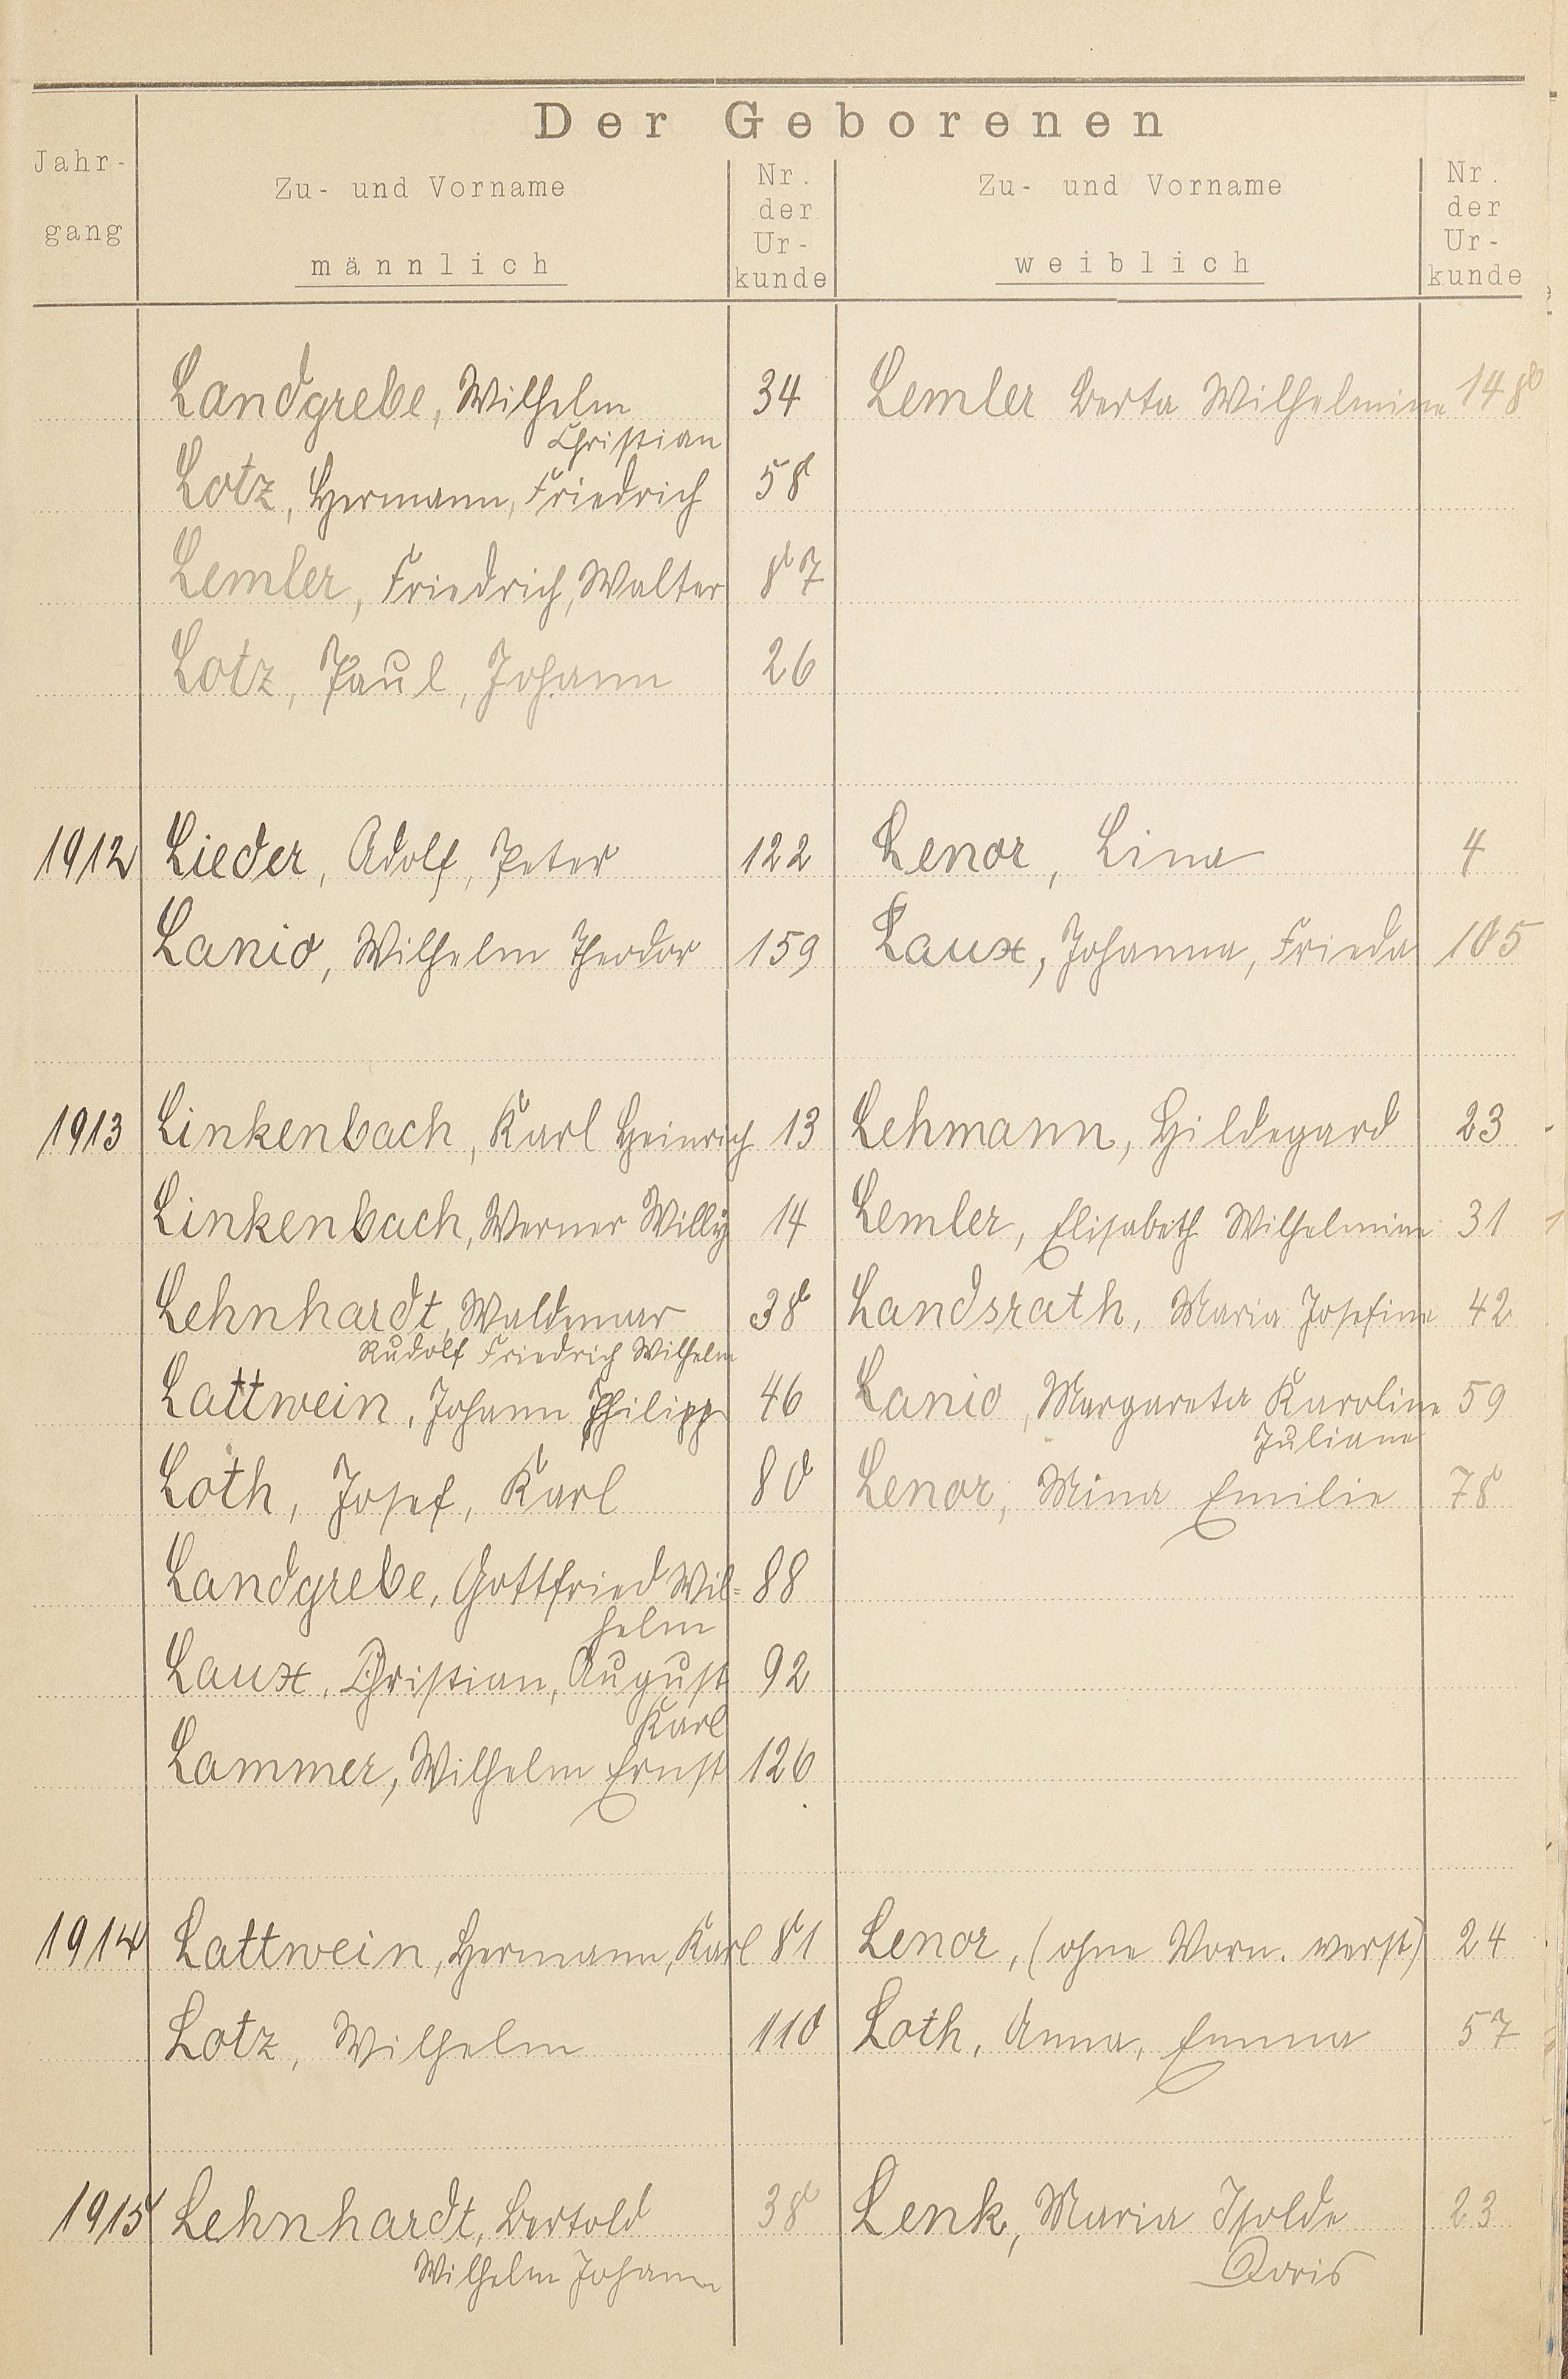 Der Geborenen
Jahr-
gang
Zu- und Vorname
männlich
Nr.
der
Ur-
kunde
Zu- und Vorname
weiblich
Nr.
der
Ur-
kunde
Landgrebe, Wilhelm 34 Lemler Berta Wilhelmine 148
Christian
Lotz, Hermann, Friedrich 58
Lemler, Friedrich, Walter 87
Lotz, Paul, Johann 26
1912 Lieder, Adolf, Peter 122 Lenor, Lina 4
Lanio, Wilhelm Theodor 159 Laux, Johanna, Frieda 105
1913 Linkenbach, Karl Heinrich 13 Lehmann, Hildegard 23
Linkenbach, Werner Willy 14 Lemler, Elisabeth Wilhelmine 31
Lehnhardt, Waldemar 38 Landsrath, Maria Josefine 42
Rudolf Friedrich Wilhelm
Lattwein, Johann Philipp 46 Lanio, Margareta Karoline 59
Juliane
Loth, Josef, Karl 80 Lenor, Mina Emilie 78
Landgrebe, Gottfried Wil= 88
helm
Laux, Christian, August 92
Karl
Lammer, Wilhelm Ernst 126
1914 Lattwein, Hermann, Karl 81 Lenor, (ohne Vorn. verst) 24
Lotz, Wilhelm 110 Loth, Anna, Emma 57
1915 Lehnhardt, Bertold 38 Lenk, Maria Isolde 23
Wilhelm Johann Doris